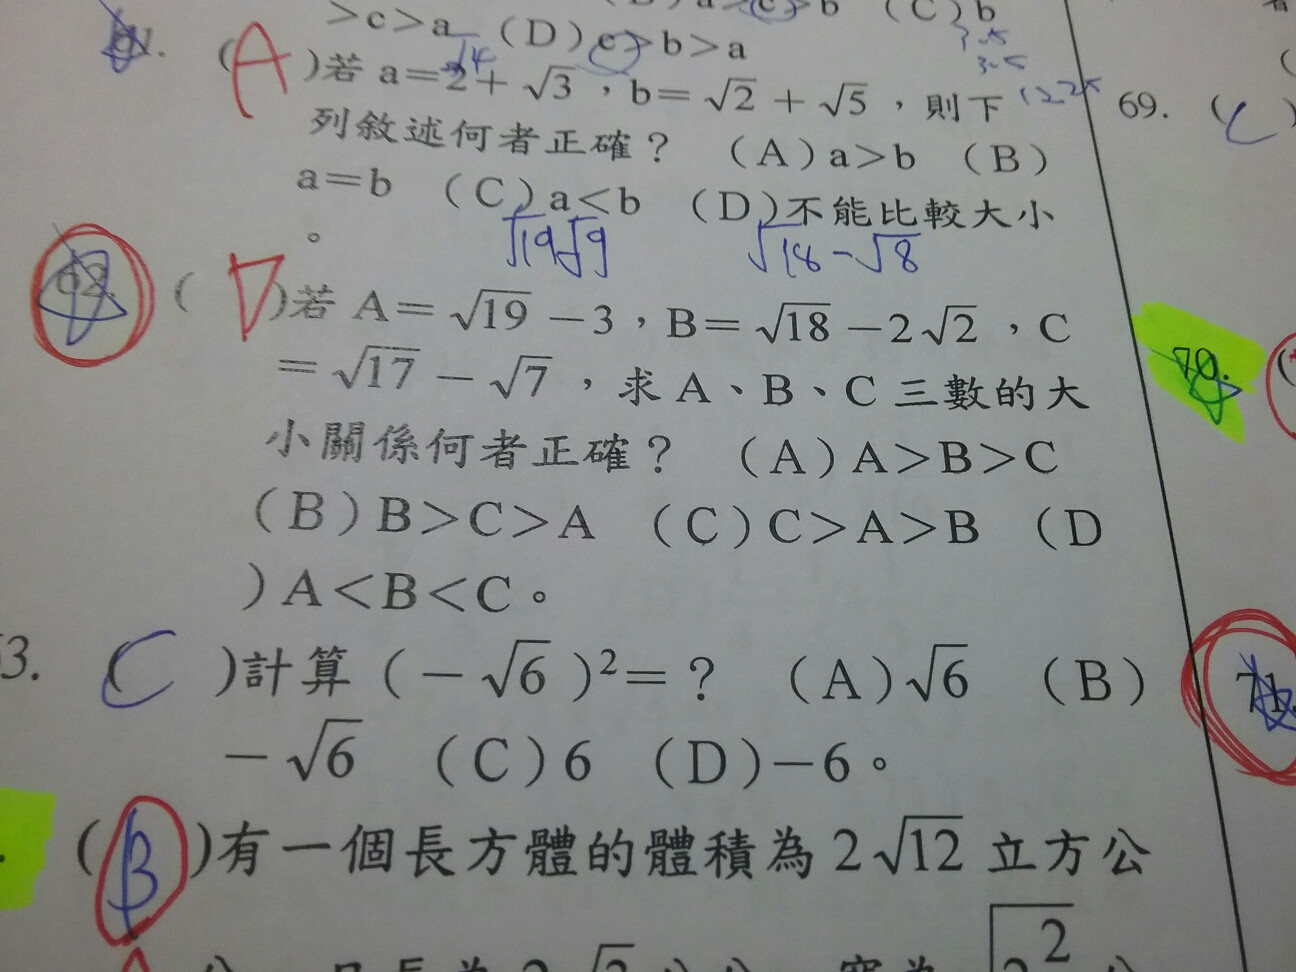 >c>a (D)c>b>a
A )若 a=2+√3，b=√2+√5，則下
列敘述何者正確？ (A)a>b (B)
a=b (C)a<b (D)不能比較大小
。
√19 √9 √18-√8
( D )若 A=√19-3，B=√18-2√2，C
=√17-√7，求 A、B、C 三數的大
小關係何者正確？ (A)A>B>C
(B)B>C>A (C)C>A>B (D
)A<B<C。
3. ( C )計算 (-√6)²=？ (A)√6 (B)
-√6 (C)6 (D)-6。
( B )有一個長方體的體積為 2√12 立方公
69. ( C )
70. (
71.